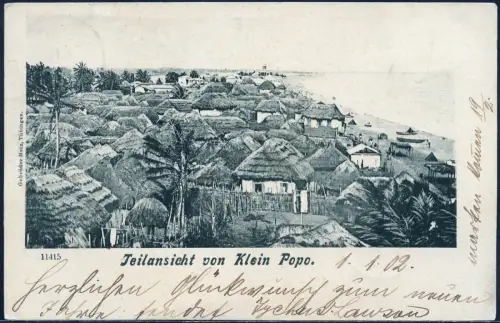 Gebrüder Metz, Tübingen.
11415
Teilansicht von Klein Popo.
1. 1. 02.
Herzlichen Glückwunsch zum neuen
Jahre sendet Lawson